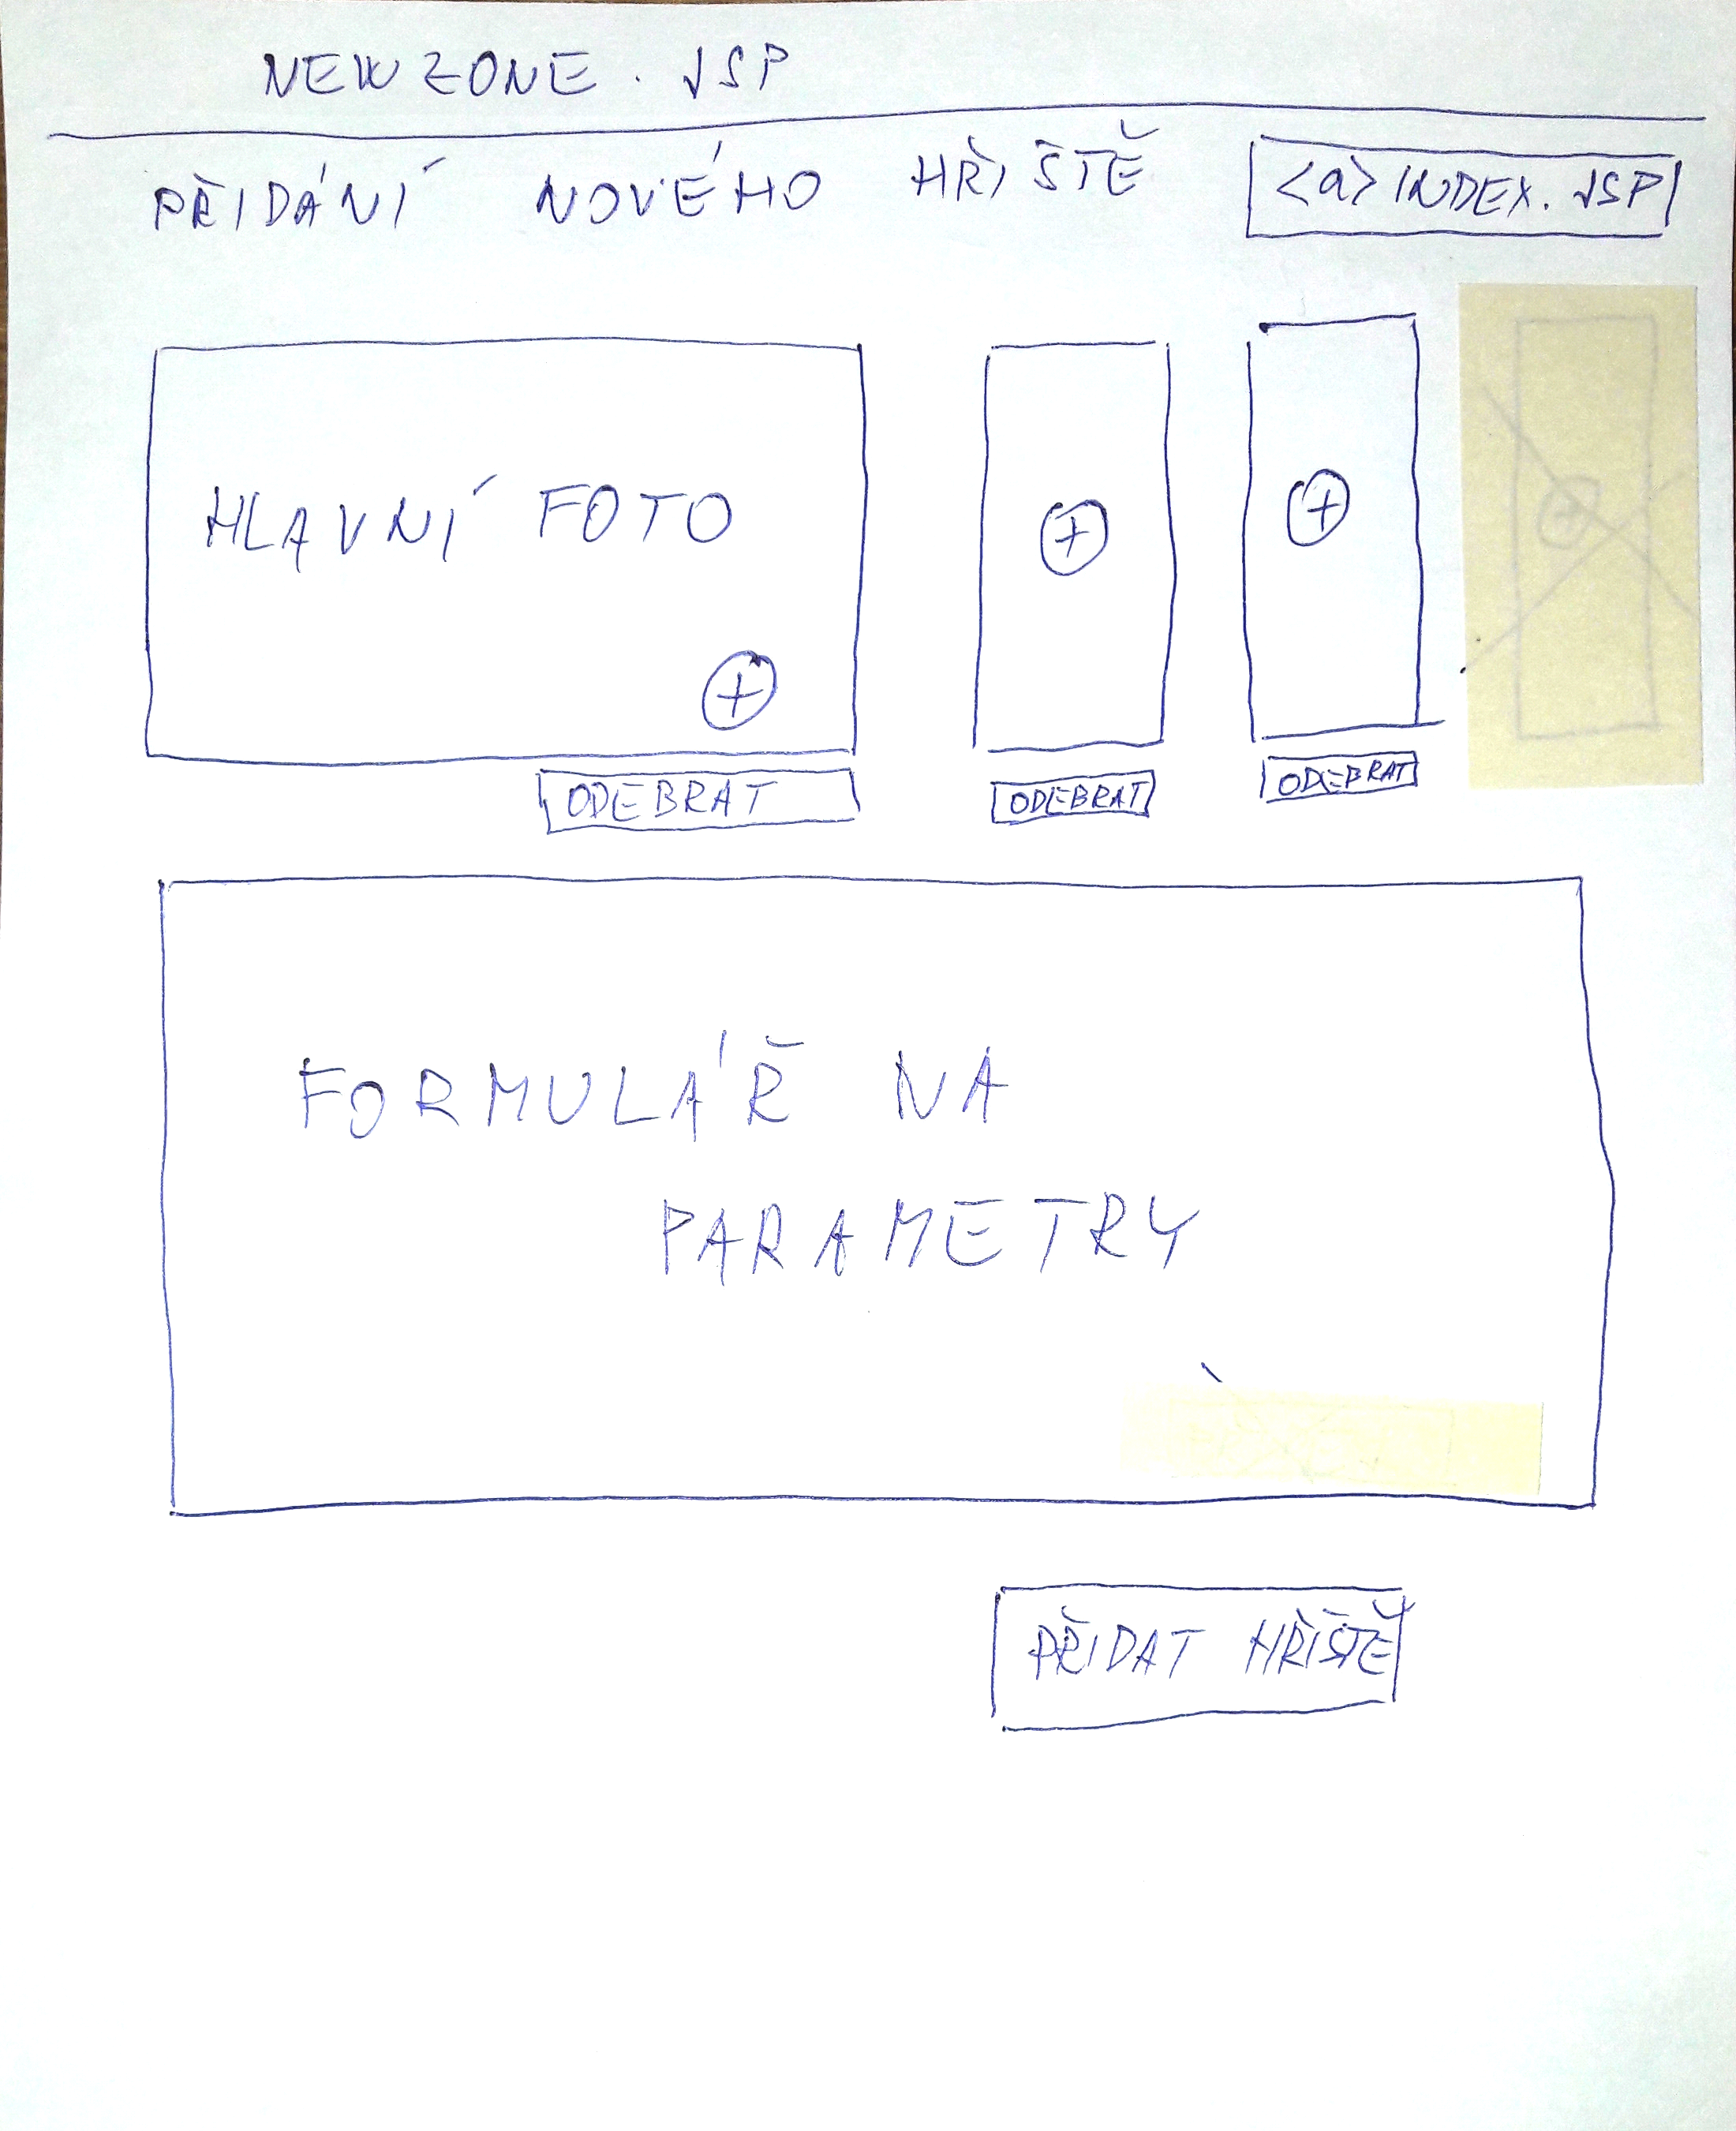 NEWZONE.JSP
PŘIDÁNÍ NOVÉHO HŘIŠTĚ <a> INDEX.JSP
HLAVNÍ FOTO
+ + +
ODEBRAT ODEBRAT ODEBRAT
FORMULÁŘ NA
PARAMETRY
PŘIDAT HŘIŠTĚ